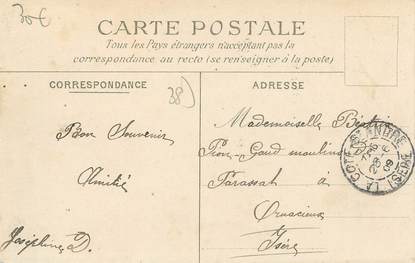 30€
CARTE POSTALE
Tous les Pays étrangers n'acceptant pas la
correspondance au recto (se renseigner à la poste)
CORRESPONDANCE
38)
Bon Souvenir
Amitié
Joséphine D.
ADRESSE
Mademoiselle
moulins
à
Ornacieux
Isère
LA COTE ST ANDRE
ISERE
09